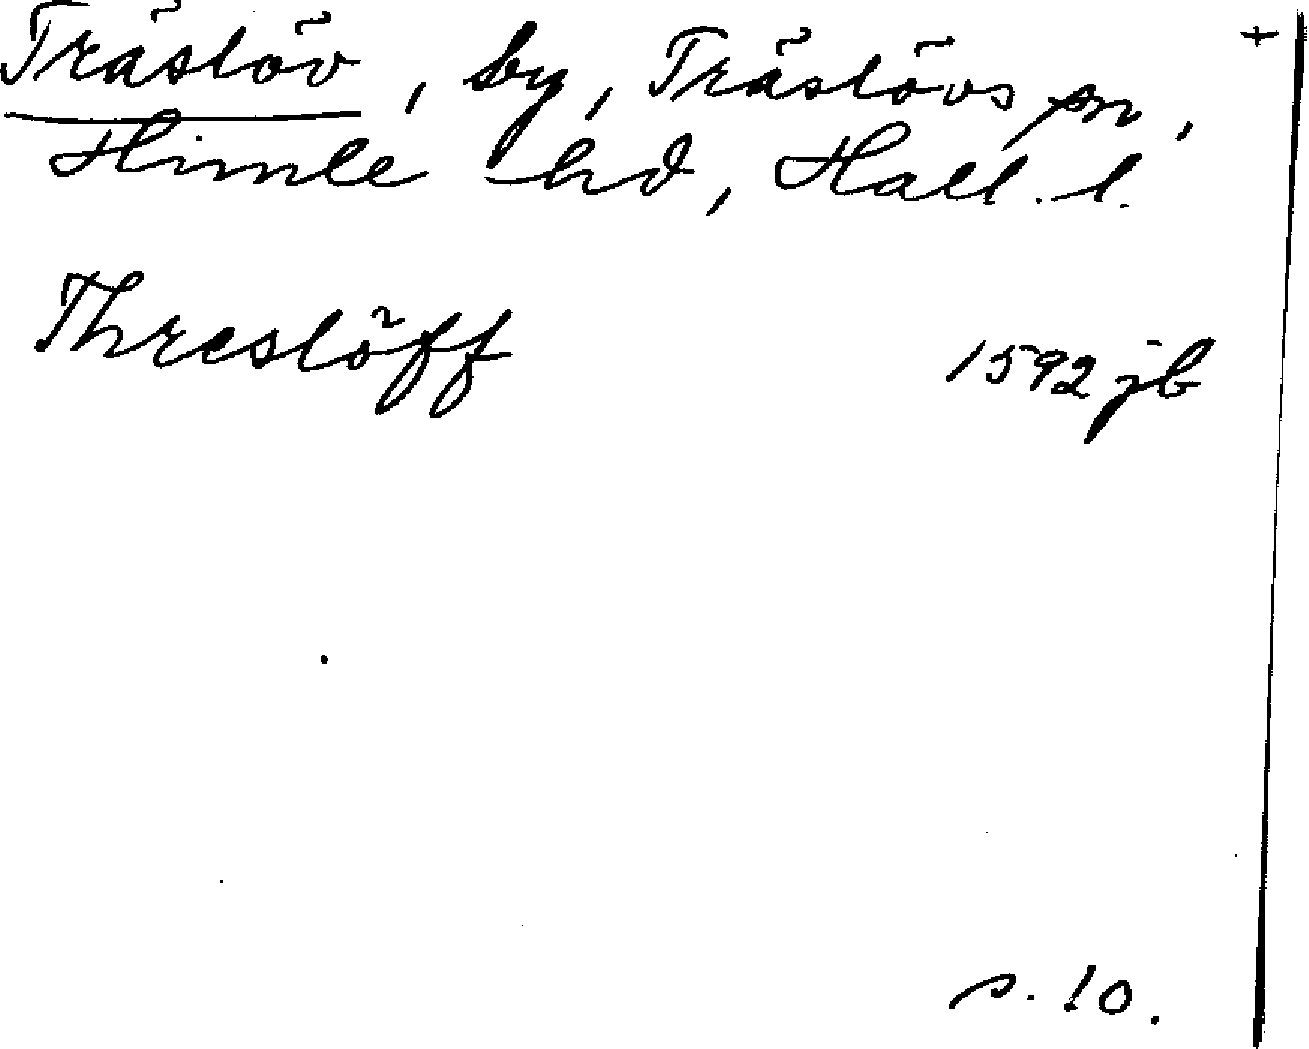 Träslöv, by, Träslövs sn, +
Himle hd, Hall. l.
Threslöff 1592 jb
s. 10.